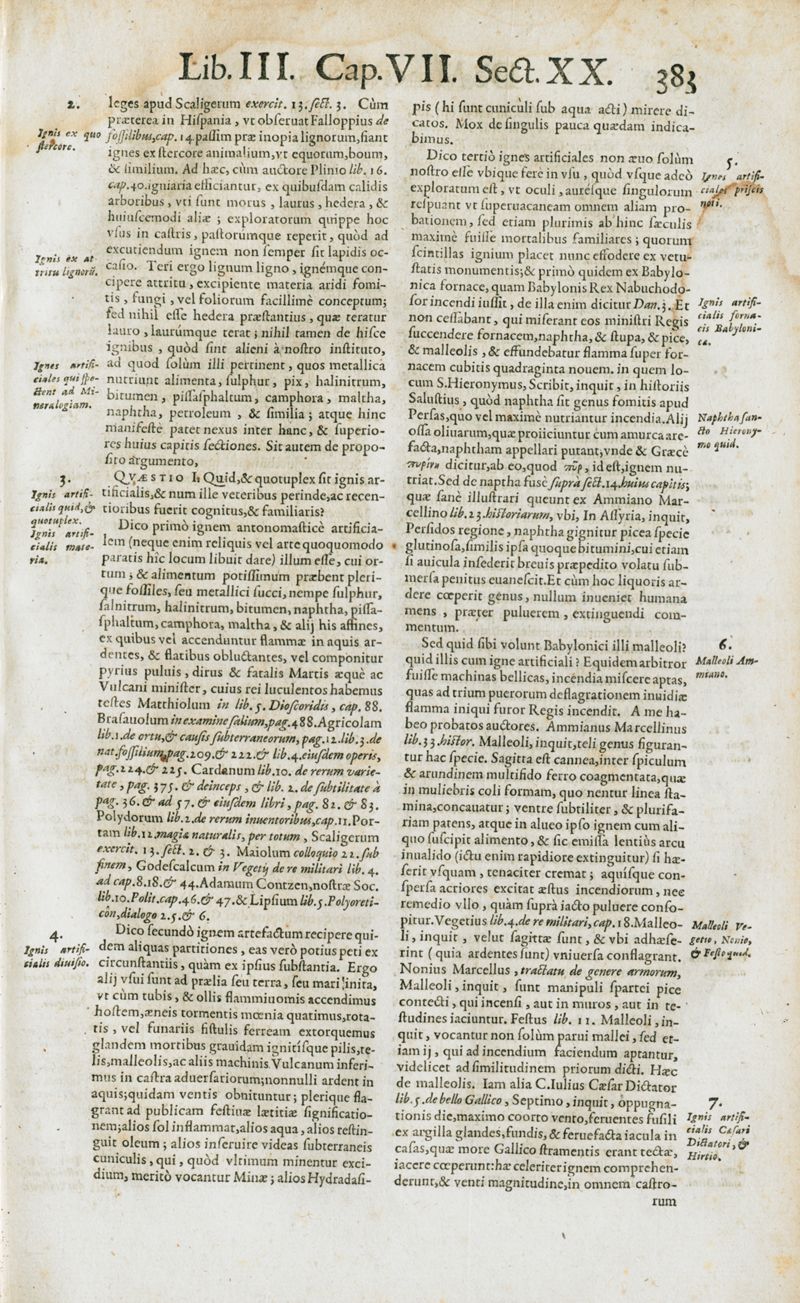 Lib. III. Cap. VII. Sect. XX. 383
2.
Ignis ex quo
stercore.
leges apud Scaligerum exercit. 13. sect. 3. Cùm
præterea in Hispania, vt obseruat Falloppius de
fossilibus, cap. 14. passim præ inopia lignorum, fiant
ignes ex stercore animalium, vt equorum, boum,
& similium. Ad hæc, cùm auctore Plinio lib. 16.
cap. 40. igniaria efficiantur, ex quibusdam calidis
arboribus, vti sunt morus, laurus, hedera, &
huiuscemodi aliæ; exploratorum quippe hoc
vsus in castris, pastorumque reperit, quòd ad
excutiendum ignem non semper sit lapidis oc-
Ignis ex at
tritu lignorū.
casio. Teri ergo lignum ligno, ignémque con-
cipere attritu, excipiente materia aridi fomi-
tis, fungi, vel foliorum facillimè conceptum;
sed nihil esse hedera præstantius, quæ teratur
lauro, laurúmque terat; nihil tamen de hisce
ignibus, quòd sint alieni à nostro instituto,
Ignes artifi-
ciales qui spe-
ctent ad Mi-
neralogiam.
ad quod solùm illi pertinent, quos metallica
nutriunt alimenta, sulphur, pix, halinitrum,
bitumen, pissasphaltum, camphora, maltha,
naphtha, petroleum, & similia; atque hinc
manifestè patet nexus inter hanc, & superio-
res huius capitis sectiones. Sit autem de propo-
sito argumento,
3.
Ignis artifi-
cialis quid, &
quotuplex.
QVÆSTIO I. Quid, & quotuplex sit ignis ar-
tificialis, & num ille veteribus perinde, ac recen-
tioribus fuerit cognitus, & familiaris?
Ignis artifi-
cialis mate-
ria.
Dico primò ignem antonomasticè artificia-
lem (neque enim reliquis vel arte quoquomodo
paratis hîc locum libuit dare) illum esse, cui or-
tum, & alimentum potissimum præbent pleri-
que fossiles, seu metallici succi, nempe sulphur,
salnitrum, halinitrum, bitumen, naphtha, pissa-
sphaltum, camphora, maltha, & alij his affines,
ex quibus vel accenduntur flammæ in aquis ar-
dentes, & flatibus obluctantes, vel componitur
pyrius puluis, dirus & fatalis Martis æquè ac
Vulcani minister, cuius rei luculentos habemus
testes Matthiolum in lib. 5. Dioscoridis, cap. 88.
Brasauolum in examine salium, pag. 488. Agricolam
lib. 1. de ortu, & causis subterraneorum, pag. 12. lib. 3. de
nat. fossilium, pag. 209. & 222. & lib. 4. eiusdem operis,
pag. 224. & 225. Cardanum lib. 10. de rerum varie-
tate, pag. 375. & deinceps, & lib. 2. de subtilitate à
pag. 36. & ad 57. & eiusdem libri, pag. 82. & 83.
Polydorum lib. 2. de rerum inuentoribus, cap. 11. Por-
tam lib. 12. magiæ naturalis, per totum, Scaligerum
exercit. 13. sect. 2. & 3. Maiolum colloquio 22. sub
finem, Godescalcum in Vegetij de re militari lib. 4.
ad cap. 8. 18. & 44. Adamum Contzen, nostræ Soc.
lib. 10. Polit. cap. 46. & 47. & Lipsium lib. 5. Polyoreti-
cōn, dialogo 2. 5. & 6.
4.
Ignis artifi-
cialis diuisio.
Dico secundò ignem artefactum recipere qui-
dem aliquas partitiones, eas verò potius peti ex
circunstantiis, quàm ex ipsius substantia. Ergo
alij vsui sunt ad prælia seu terra, seu mari inita,
vt cùm tubis, & ollis flammiuomis accendimus
hostem, æneis tormentis mœnia quatimus, rota-
tis, vel funariis fistulis ferream extorquemus
glandem mortibus grauidam ignitísque pilis, te-
lis, malleolis, ac aliis machinis Vulcanum inferi-
mus in castra aduersariorum; nonnulli ardent in
aquis; quidam ventis obnituntur; plerique fla-
grant ad publicam festiuæ lætitiæ significatio-
nem; alios sol inflammat, alios aqua, alios restin-
guit oleum; alios inseruire videas subterraneis
cuniculis, qui, quòd vltimum minentur exci-
dium, meritò vocantur Minæ; alios Hydradasi-
pis (hi sunt cuniculi sub aqua acti) mirere di-
catos. Mox de singulis pauca quædam indica-
bimus.
5.
Ignes artifi-
ciales priscis
noti.
Dico tertiò ignes artificiales non æuo solùm
nostro esse vbique fere in vsu, quòd vsque adeò
exploratum est, vt oculi, aurésque singulorum
respuant vt superuacaneam omnem aliam pro-
bationem, sed etiam plurimis ab hinc sæculis
maximè fuisse mortalibus familiares; quorum
scintillas ignium placet nunc effodere ex vetu-
statis monumentis; & primò quidem ex Babylo-
nica fornace, quam Babylonis Rex Nabuchodo-
Ignis artifi-
cialis forna-
cis Babyloni-
cæ.
sor incendi iussit, de illa enim dicitur Dan. 3. Et
non cessabant, qui miserant eos ministri Regis
succendere fornacem, naphtha, & stupa, & pice,
& malleolis, & effundebatur flamma super for-
nacem cubitis quadraginta nouem. in quem lo-
cum S. Hieronymus, Scribit, inquit, in historiis
Salustius, quòd naphtha sit genus fomitis apud
Naphtha san-
cto Hierony-
mo quid.
Persas, quo vel maximè nutriantur incendia. Alij
ossa oliuarum, quæ proiiciuntur cum amurca are-
facta, naphtham appellari putant, vnde & Græcè
πυρίνη dicitur, ab eo, quod πῦρ, id est, ignem nu-
triat. Sed de naptha fusè suprà sect. 14. huius capitis;
quæ sanè illustrari queunt ex Ammiano Mar-
cellino lib. 23. historiarum, vbi, In Assyria, inquit,
Persidos regione, naphtha gignitur picea specie
glutinosa, similis ipsa quoque bitumini, cui etiam
si auicula insederit breuis præpedito volatu sub-
mersa penitus euanescit. Et cùm hoc liquoris ar-
dere cœperit genus, nullum inueniet humana
mens, præter puluerem, extinguendi com-
mentum.
6.
Malleoli Am-
miano.
Sed quid sibi volunt Babylonici illi malleoli?
quid illis cum igne artificiali? Equidem arbitror
fuisse machinas bellicas, incendia miscere aptas,
quas ad trium puerorum deflagrationem inuidiæ
flamma iniqui furor Regis incendit. A me ha-
beo probatos auctores. Ammianus Marcellinus
lib. 33. histor. Malleoli, inquit, teli genus figuran-
tur hac specie. Sagitta est cannea, inter spiculum
& arundinem multifido ferro coagmentata, quæ
in muliebris coli formam, quo nentur linea sta-
mina, concauatur; ventre subtiliter, & plurifa-
riam patens, atque in alueo ipso ignem cum ali-
quo suscipit alimento, & sic emissa lentiùs arcu
inualido (ictu enim rapidiore extinguitur) si hæ-
serit vsquam, tenaciter cremat; aquísque con-
spersa acriores excitat æstus incendiorum, nec
remedio vllo, quàm suprà iacto puluere conso-
Malleoli Ve-
getio, Nonio,
& Festo quid.
pitur. Vegetius lib. 4. de re militari, cap. 18. Malleo-
li, inquit, velut sagittæ sunt, & vbi adhæse-
rint (quia ardentes sunt) vniuersa conflagrant.
Nonius Marcellus, tractatu de genere armorum,
Malleoli, inquit, sunt manipuli spartei pice
contecti, qui incensi, aut in muros, aut in te-
studines iaciuntur. Festus lib. 11. Malleoli, in-
quit, vocantur non solùm parui mallei, sed et-
iam ij, qui ad incendium faciendum aptantur,
videlicet ad similitudinem priorum dicti. Hæc
de malleolis. Iam alia C. Iulius Cæsar Dictator
7.
Ignis artifi-
cialis Cæsari
Dictatori, &
Hirtio.
lib. 5. de bello Gallico, Septimo, inquit, oppugna-
tionis die, maximo coorto vento, feruentes fusili
ex argilla glandes, fundis, & feruefacta iacula in
casas, quæ more Gallico stramentis erant tectæ,
iacere cœperunt: hæ celeriter ignem comprehen-
derunt, & venti magnitudine, in omnem castro-
rum